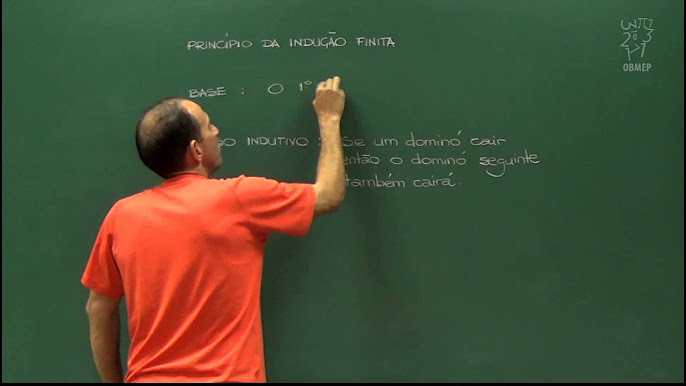 PRINCÍPIO DA INDUÇÃO FINITA
BASE : O 1º
INDUTIVO : Se um dominó cair
então o dominó seguinte
também cairá.
OBMEP